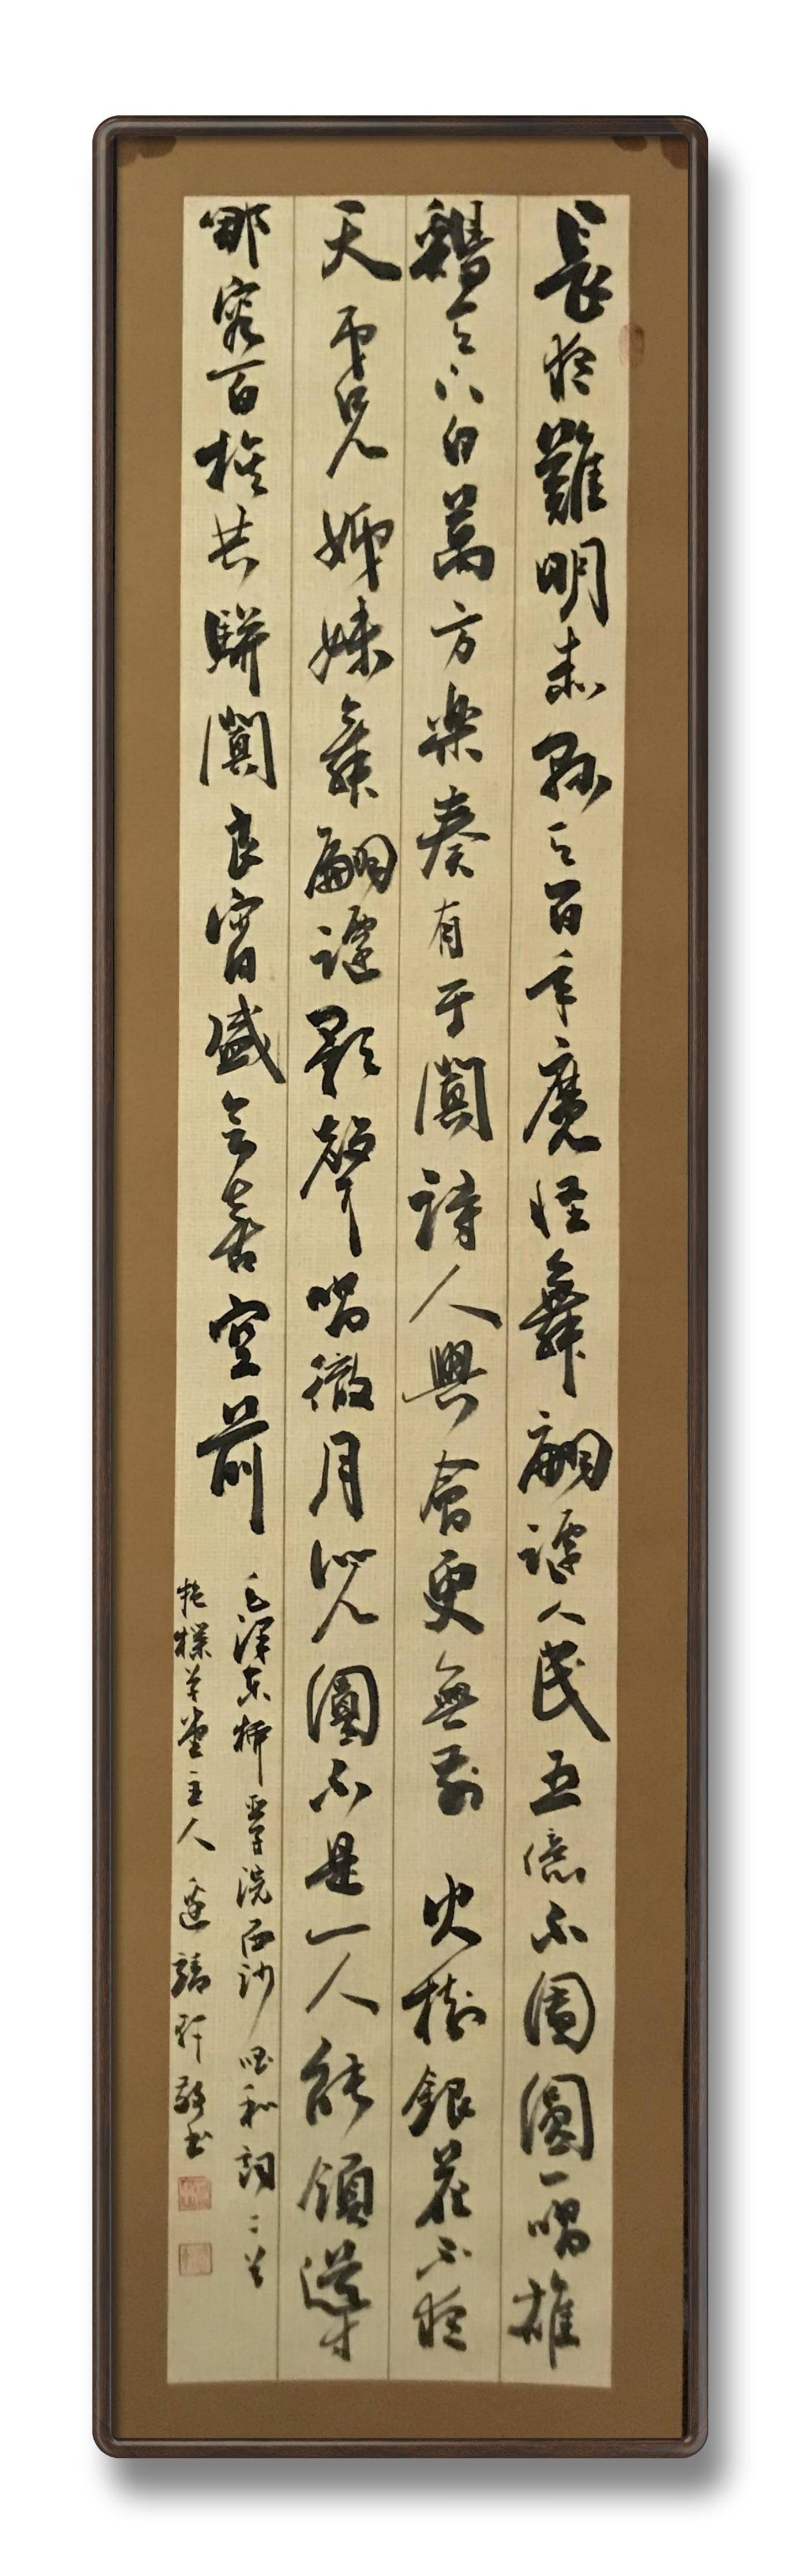 長夜難明赤縣天百年魔怪舞翩躚人民五億不團圓一唱雄
雞天下白萬方楽奏有于闐詩人興會更無前 火樹銀花不夜
天弟兄姊妹舞翩躚歌聲唱徹月兒圓不是一人能領導
那容百族共駢闐良宵盛会喜空前
毛澤東柳亞子浣西沙唱和詞二首
抱樸草堂主人 靖軒敬書